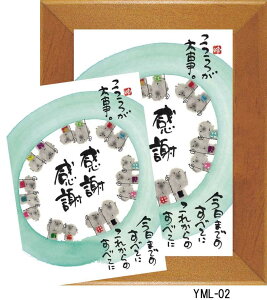 こころが
大事。
感謝
今日までの
すべてに
これからの
すべてに
感謝
感謝
今日までの
すべてに
これからの
すべてに
YML-02